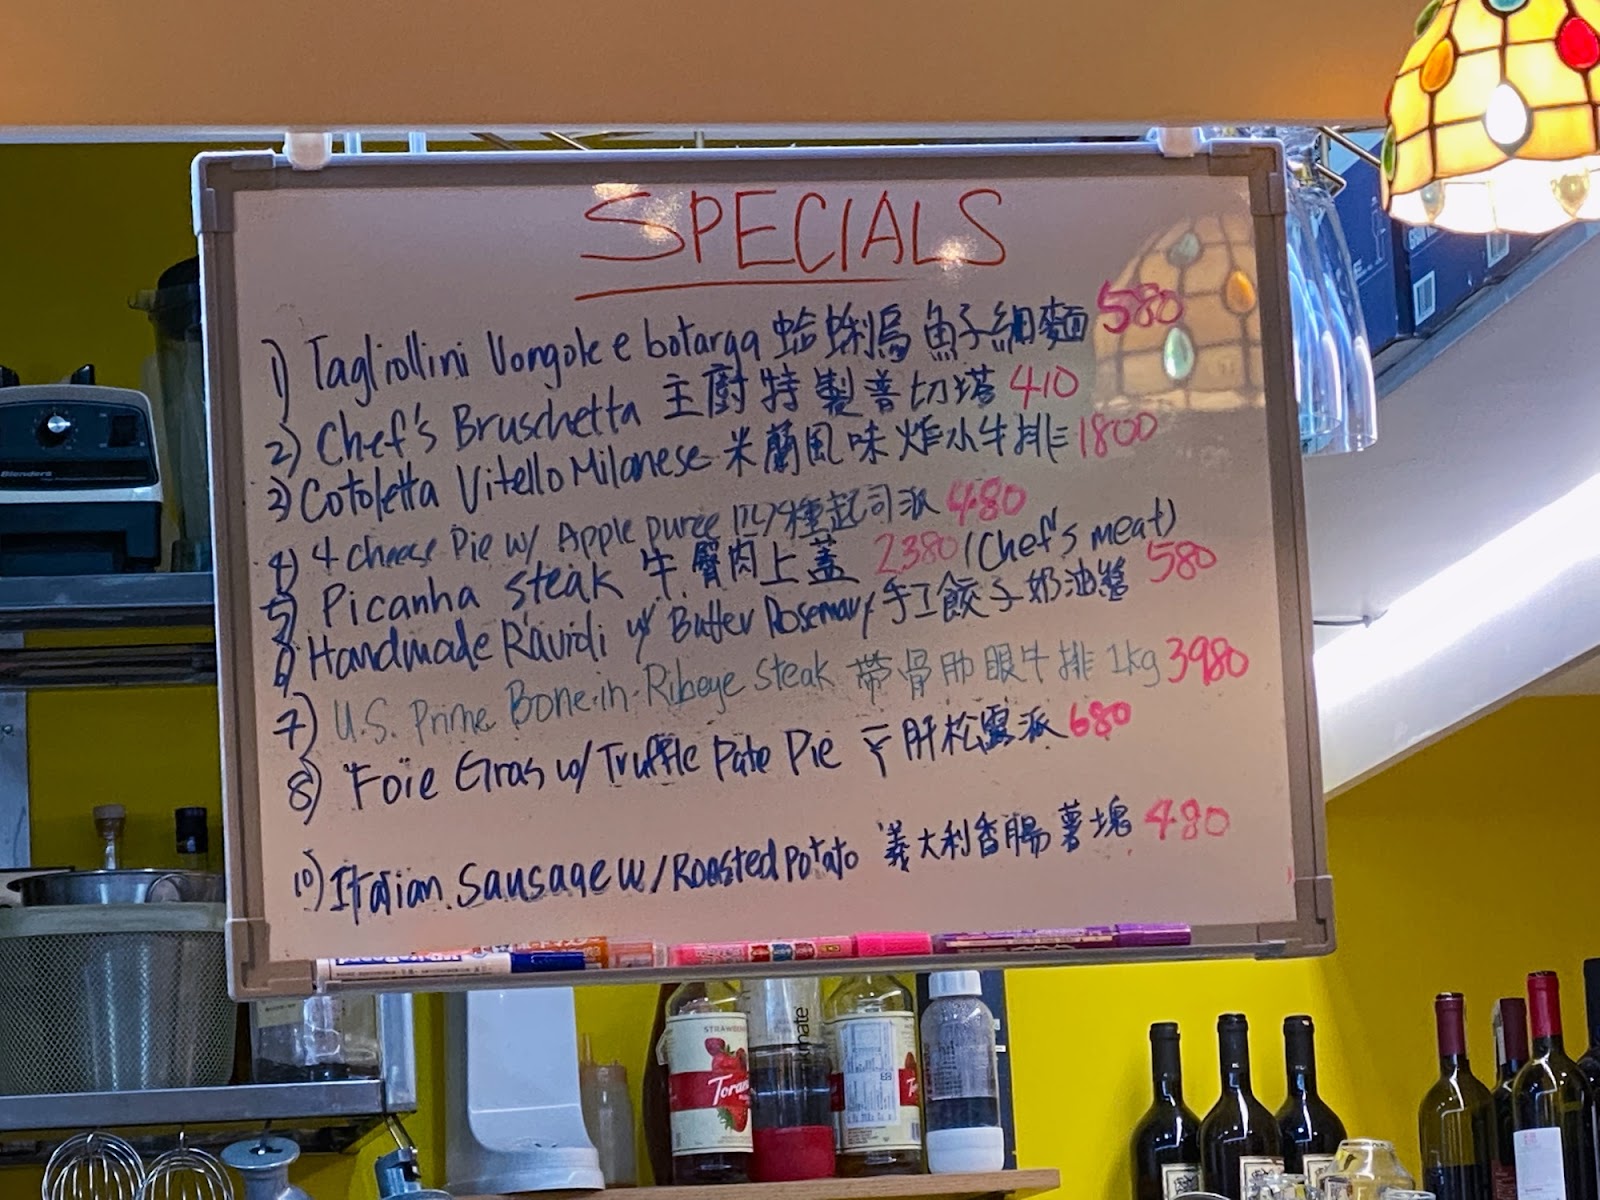 SPECIALS
1) Tagliollini Vongole e botarga 蛤蜊烏魚子細麵 580
2) Chef's Bruschetta 主廚特製普切塔 410
3) Cotoletta Vitello Milanese 米蘭風味炸小牛排 1800
4) 4 cheese Pie w/ Apple puree 四種起司派 480
5) Picanha steak 牛臀肉上蓋 2380 (Chef's meat)
6) Handmade Ravioli w/ Butter Rosemary 手工餃子奶油醬 580
7) U.S. Prime Bone-in-Ribeye steak 帶骨肋眼牛排 1kg 3980
8) Foie Gras w/ Truffle Pate Pie 肝松露派 680
10) Italian Sausage w/ Roasted Potato 義大利香腸薯塊 480
Blenders
STRAWBERRY
Torani